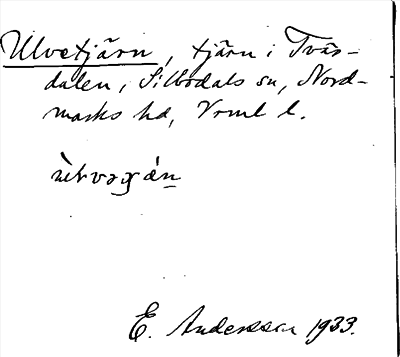 Ulvetjärn, tjärn i Tvärdalen, Silbodals sn, Nordmarks hd, Vrml l.
E. Andersson 1933.